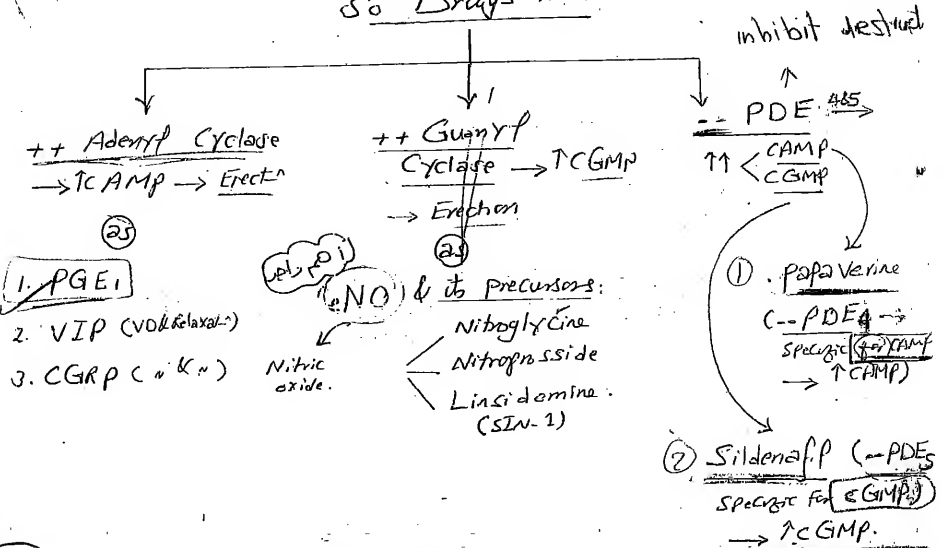 So Drugs
inhibit destruct
++ Adenyl Cyclase
→ ↑CAMP → Erectⁿ
as
1. PGE1
2. VIP (VD & Relaxatⁿ)
3. CGRP ( " & " )
++ Guanyl
Cyclase → ↑CGMP
→ Erection
as
أهم واحد
(NO) & its precursors:
Nitric
oxide.
Nitroglycine
Nitroprosside
Linsidomine.
(SIN-1)
-- PDE 4&5 →
↑↑ < CAMP
CGMP
① . Papaverine
(-- PDE4 →
specific for CAMP
→ ↑ CAMP)
② Sildenafil (-- PDE5
specific for CGMP)
→ ↑ CGMP.